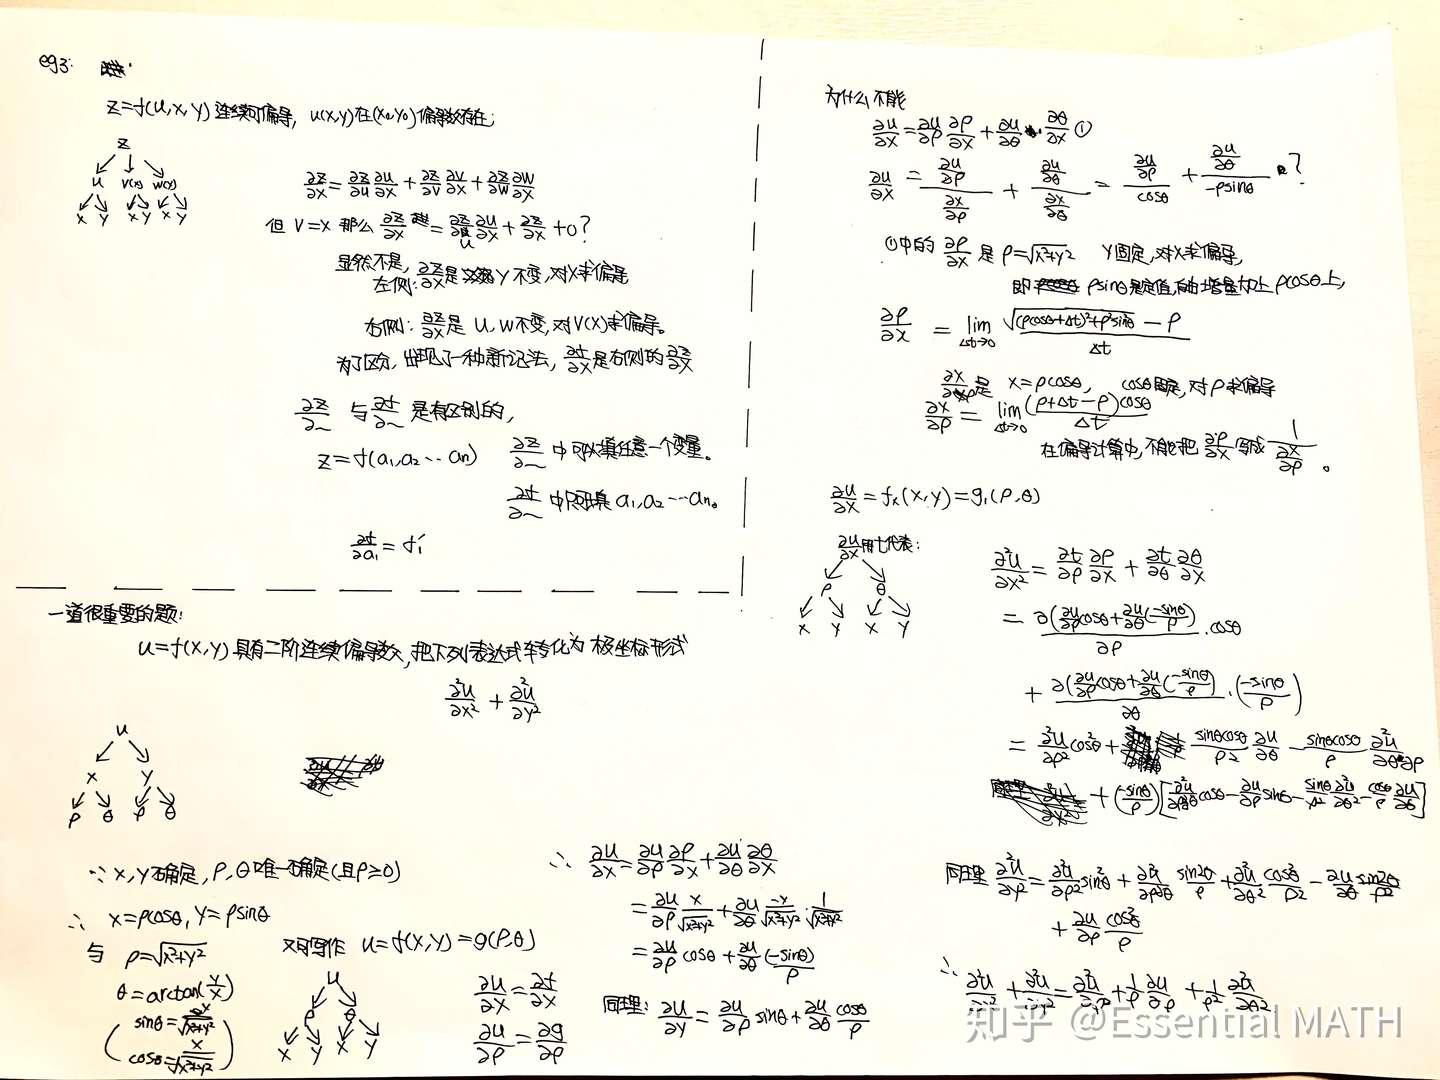 eg3:
z=f(u,x,y)连续可偏导, u(x,y)在(x₀,y₀)偏导数存在;
z
u v(x) w(y)
x y x y x y
∂z/∂x=∂z/∂u ∂u/∂x+∂z/∂v ∂v/∂x+∂z/∂w ∂w/∂x
但 v=x 那么 ∂z/∂x=∂z/∂u ∂u/∂x+∂z/∂x+0?
显然不是,
左侧:∂z/∂x是 y不变,对x求偏导
右侧:∂z/∂x是 u,w不变,对v(x)求偏导。
为了区分,出现了一种新记法,∂f/∂x是右侧的∂z/∂x
∂z/∂~ 与∂f/∂~ 是有区别的,
z=f(a₁,a₂…aₙ) ∂z/∂~ 中可以填任意一个变量。
∂f/∂~ 中只可填 a₁,a₂…aₙ。
∂f/∂a₁=f₁'
一道很重要的题:
u=f(x,y)具有二阶连续偏导数,把下列表达式转化为 极坐标形式
∂²u/∂x²+∂²u/∂y²
u
x y
ρ θ ρ θ
∵ x,y确定,ρ,θ唯一确定(且ρ≥0)
∴ x=ρcosθ, y=ρsinθ
与 ρ=√(x²+y²)
θ=arctan(y/x)
(sinθ=y/√(x²+y²)
cosθ=x/√(x²+y²))
又可写作 u=f(x,y)=g(ρ,θ)
u
ρ θ
x y x y
∂u/∂x=∂f/∂x
∂u/∂ρ=∂g/∂ρ
∴ ∂u/∂x=∂u/∂ρ ∂ρ/∂x+∂u/∂θ ∂θ/∂x
=∂u/∂ρ x/√(x²+y²)+∂u/∂θ -y/√(x²+y²)·1/√(x²+y²)
=∂u/∂ρ cosθ+∂u/∂θ (-sinθ)/ρ
同理: ∂u/∂y=∂u/∂ρ sinθ+∂u/∂θ cosθ/ρ
为什么不能
∂u/∂x=∂u/∂ρ ∂ρ/∂x+∂u/∂θ·∂θ/∂x ①
∂u/∂x=(∂u/∂ρ)/(∂x/∂ρ)+(∂u/∂θ)/(∂x/∂θ)=(∂u/∂ρ)/cosθ+(∂u/∂θ)/(-ρsinθ)?
①中的 ∂ρ/∂x 是 ρ=√(x²+y²) y固定,对x求偏导,
即 ρsinθ是定值,增量加上ρcosθ上,
∂ρ/∂x=lim Δt→0 (√((ρcosθ+Δt)²+ρ²sin²θ)-ρ)/Δt
∂x/∂ρ是 x=ρcosθ, cosθ固定,对ρ求偏导
∂x/∂ρ=lim Δt→0 (ρ+Δt-ρ)cosθ/Δt
在偏导计算中,不能把 ∂ρ/∂x 写成 1/(∂x/∂ρ)。
∂u/∂x=fₓ(x,y)=g₁(ρ,θ)
∂u/∂x用t代表:
ρ θ
x y x y
∂²u/∂x²=∂t/∂ρ ∂ρ/∂x+∂t/∂θ ∂θ/∂x
=∂(∂u/∂ρ cosθ+∂u/∂θ(-sinθ/ρ))/∂ρ·cosθ
+∂(∂u/∂ρ cosθ+∂u/∂θ(-sinθ/ρ))/∂θ·(-sinθ/ρ)
=∂²u/∂ρ² cos²θ+sinθcosθ/ρ² ∂u/∂θ-sinθcosθ/ρ ∂²u/∂θ∂ρ
+(-sinθ/ρ)[∂²u/∂ρ∂θ cosθ-∂u/∂ρ sinθ-sinθ/ρ ∂²u/∂θ²-cosθ/ρ ∂u/∂θ]
同理 ∂²u/∂y²=∂²u/∂ρ² sin²θ+∂²u/∂ρ∂θ sin2θ/ρ+∂²u/∂θ² cos²θ/ρ²-∂u/∂θ sin2θ/ρ²
+∂u/∂ρ cos²θ/ρ
∴ ∂²u/∂x²+∂²u/∂y²=∂²u/∂ρ²+1/ρ ∂u/∂ρ+1/ρ² ∂²u/∂θ²
知乎 @Essential MATH